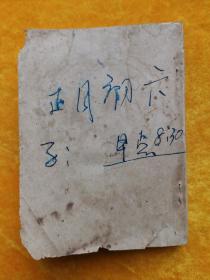 正月初六
子： 早点8:30